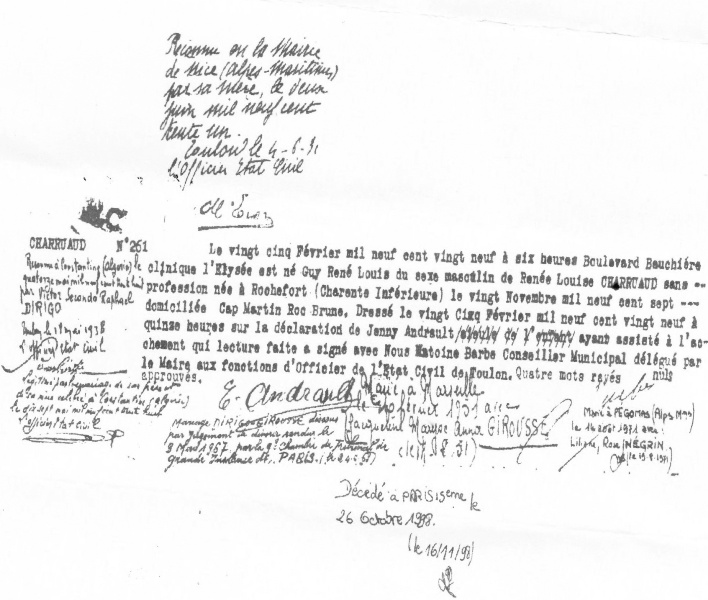 Reconnu en la Mairie
de Nice (Alpes-Maritimes)
par sa mère, le deux
juin mil neuf cent
trente un.
Toulon le 4-6-31
l'Officier Etat Civil
CHARRUAUD N°261
Reconnu à Constantine (Algérie) le
quatorze mai mil neuf cent trente huit
par Victor Secondo Raphael
DIRIGO
Toulon le 18 mai 1938
L'officier état civil
Le vingt cinq Février mil neuf cent vingt neuf à six heures Boulevard Beuchiére
clinique l'Elysée est né Guy René Louis du sexe masculin de Renée Louise CHARRUAUD sans --
profession née à Rochefort (Charente Inférieure) le vingt Novembre mil neuf cent sept ---
domiciliée Cap Martin Roc Brune. Dressé le vingt Cinq Février mil neuf cent vingt neuf à
quinze heures sur la déclaration de Jenny Andrault ayant assisté à l'ac-
chement qui lecture faite a signé avec Nous Antoine Barbe Conseiller Municipal délégué par
le Maire aux fonctions d'Officier de l'Etat Civil de Toulon. Quatre mots rayés nuls
approuvés.
E. Andrault
Légitimé par le mariage de ses père et
mère célébré à Constantine (Algérie)
le dix sept mai mil neuf cent trente huit
L'officier état civil
Marié à Marseille
le 1951 avec
Jacqueline Maryse Anna GIROUSSE
Mariage DIRIGO-GIROUSSE dissous
par jugement de divorce rendu le
9 Mars 1967 par la 9° chambre du Tribunal de
Grande Instance de PARIS.
Marié à PEGOMAS (Alpes Mmes)
le 14 août 1971 avec
Liliane, Rose NEGRIN
Décédé à PARIS 15eme le
26 Octobre 1998.
(le 16/11/98)